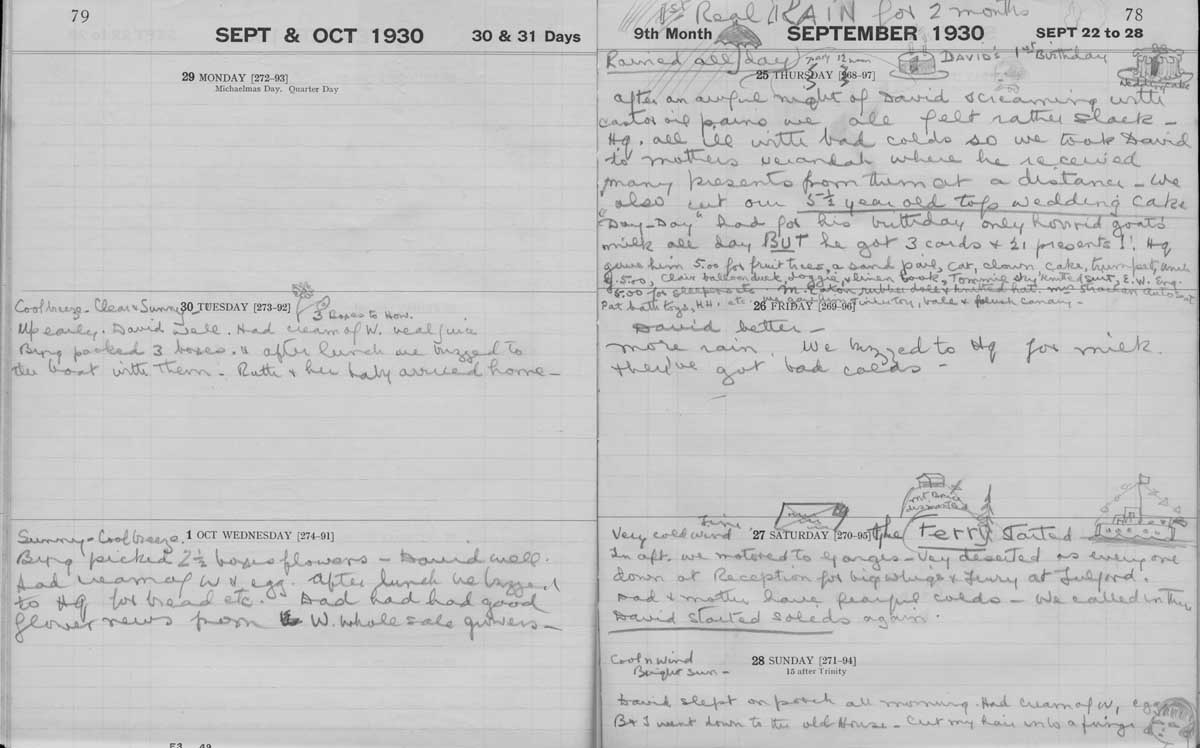 79
SEPT & OCT 1930 30 & 31 Days
29 MONDAY [272-93]
Michaelmas Day. Quarter Day
Cool breeze - Clear & Sunny 30 TUESDAY [273-92] 3 Boxes to How.
Up early. David well. Had cream of W. veal juice
Bing packed 3 boxes. & after lunch we buzzed to
the boat with them - Ruth & her baby arrived home -
Sunny - Cool breeze. 1 OCT WEDNESDAY [274-91]
Bing picked 2½ boxes flowers - David well.
Had cream of W & egg. After lunch we buzzed
to Hq for bread etc. Dad had had good
flower news from W. whole sale growers -
1st Real RAIN for 2 months 78
9th Month SEPTEMBER 1930 SEPT 22 to 28
Rained all day 25 THURSDAY [268-97] DAVID'S 1st Birthday
wedding cake
After an awful night of David screaming with
castor oil pains we all felt rather slack -
Hq. all ill with bad colds so we took David
to mothers verandah where he received
many presents from them at a distance - We
also cut our 5½ year old top wedding cake
"Day-Day" had for his birthday only horrid goats
milk all day BUT he got 3 cards & 21 presents!! Hq
gave him 5.00 for fruit trees, a sand pail, car, clown, cake, trumpet,
5.00, Clair balloon duck, doggie, & linen book, Tommie sky knitted suit, E.W. Eng.
5.00 for M. Eaton rubber doll & knitted hat. Mrs Strachan
Pat bath toys, H.H. etc. we & plush canary -
26 FRIDAY [269-96]
David better -
more rain. We buzzed to Hq for milk.
& they've got bad colds -
Very cold wind Fine 27 SATURDAY [270-95] The Ferry Started
In aft. we motored to Ganges - Very deserted as every one
down at Reception for big whigs & Ferry at Fulford.
Dad & mother have fearful colds - We called in there
David started solids again.
Cool n wind 28 SUNDAY [271-94]
Bright sun - 15 after Trinity
David slept on porch all morning. Had cream of W, egg
B & I went down to the old House - Cut my hair into a fringe